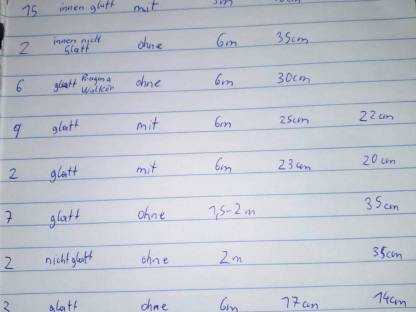 15 innen glatt mit
2 innen nicht glatt ohne 6m 35cm
6 glatt Pragma ohne 6m 30cm
9 glatt mit 6m 25cm 22cm
2 glatt mit 6m 23cm 20cm
7 glatt ohne 1,5-2m 35cm
2 nicht glatt ohne 2m 35cm
glatt ohne 6m 17cm 14cm